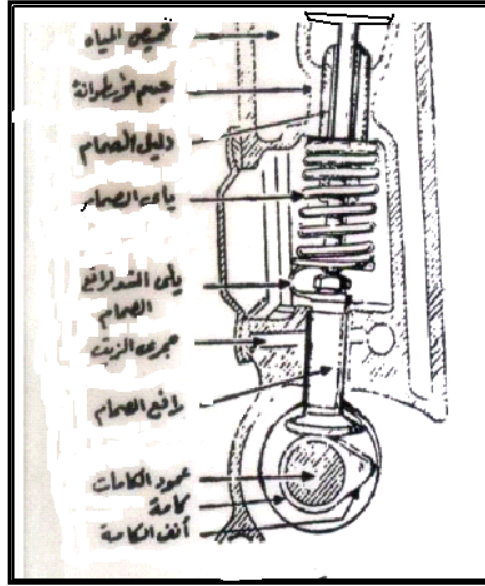 قميص المياه
جسم الأسطوانة
دليل الصمام
ياى الصمام
ياى الشد لرافع
الصمام
مجرى الزيت
رافع الصمام
عمود الكامات
كامة
أنف الكامة